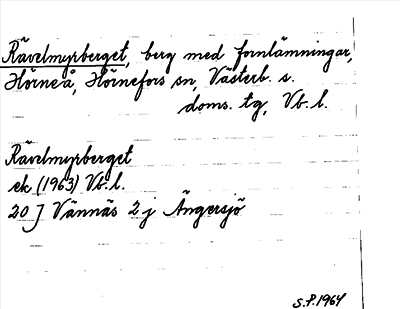 Rävelmyrberget, berg med fornlämningar,
Hörneå, Hörnefors sn, Västerb. s.
doms. tg, Vb. l.
Rävelmyrberget
ek (1963) Vb. l.
20 J Vännäs 2 j Ängersjö
S.P. 1964